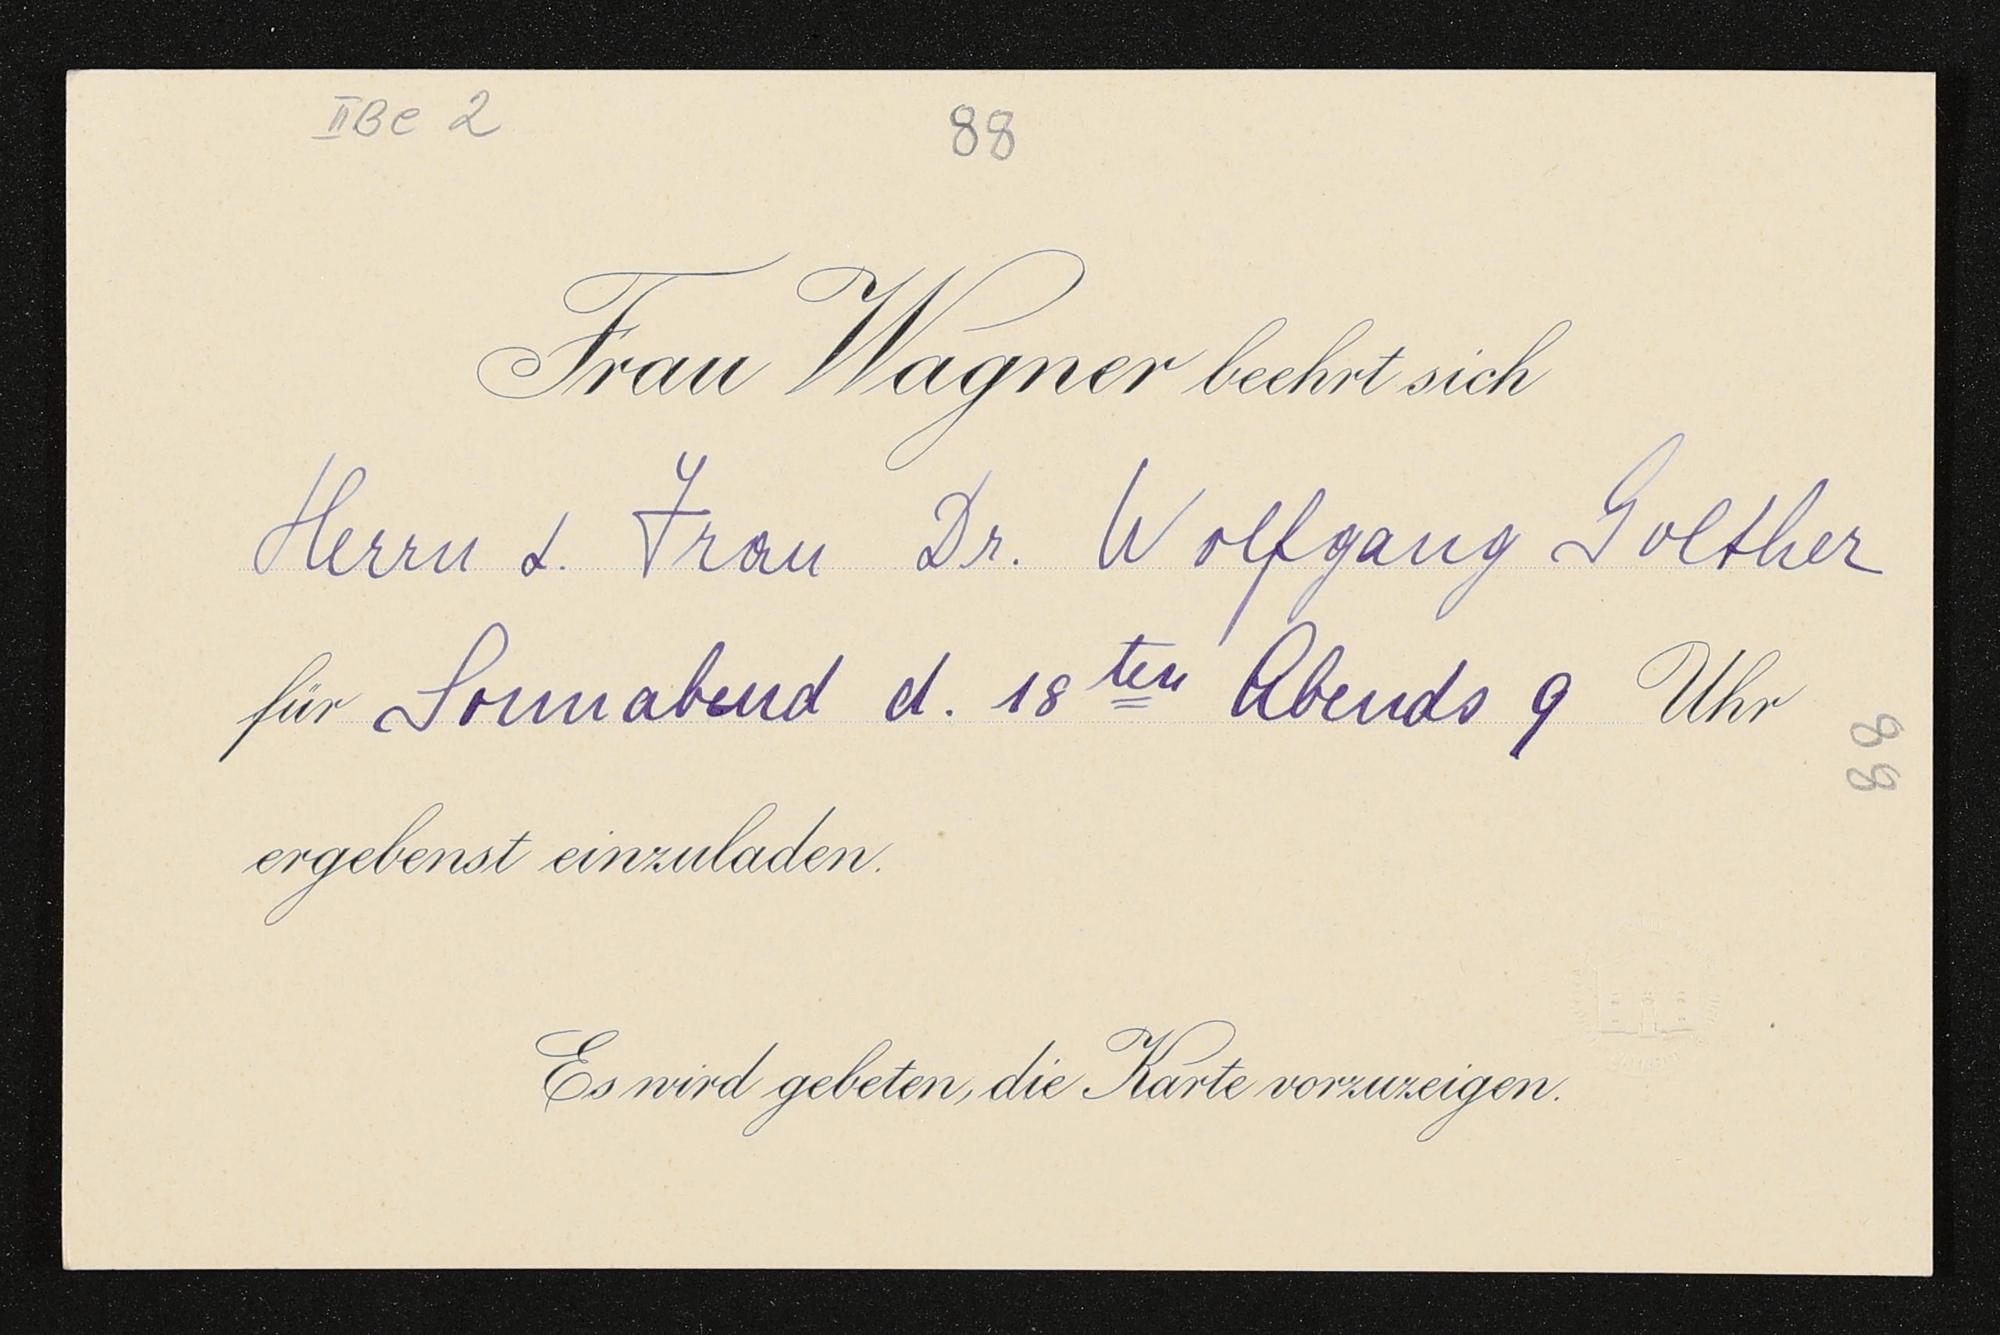 IIBe 2
88
Frau Wagner beehrt sich
Herrn &. Frau Dr. Wolfgang Golther
für Sonnabend d. 18ten Abends 9 Uhr
88
ergebenst einzuladen.
Es wird gebeten, die Karte vorzuzeigen.